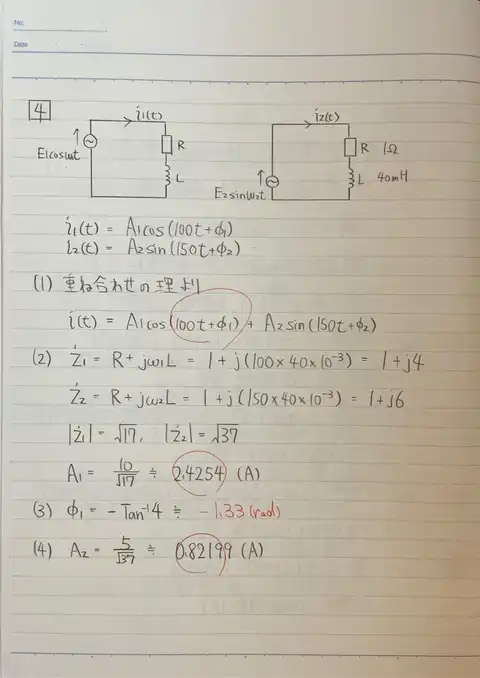 No.
Date
4
i1(t)
R
L
E1cosωt
i2(t)
R 1Ω
L 40mH
E2sinω2t
i1(t) = A1cos(100t+φ1)
i2(t) = A2sin(150t+φ2)
(1) 重ね合わせの理より
i(t) = A1cos(100t+φ1) + A2sin(150t+φ2)
(2) Ż1 = R+jω1L = 1+j(100×40×10⁻³) = 1+j4
Ż2 = R+jω2L = 1+j(150×40×10⁻³) = 1+j6
|Ż1| = √17, |Ż2| = √37
A1 = 10/√17 ≒ 2.4254 (A)
(3) φ1 = -Tan⁻¹4 ≒ -1.33 (rad)
(4) A2 = 5/√37 ≒ 0.82199 (A)